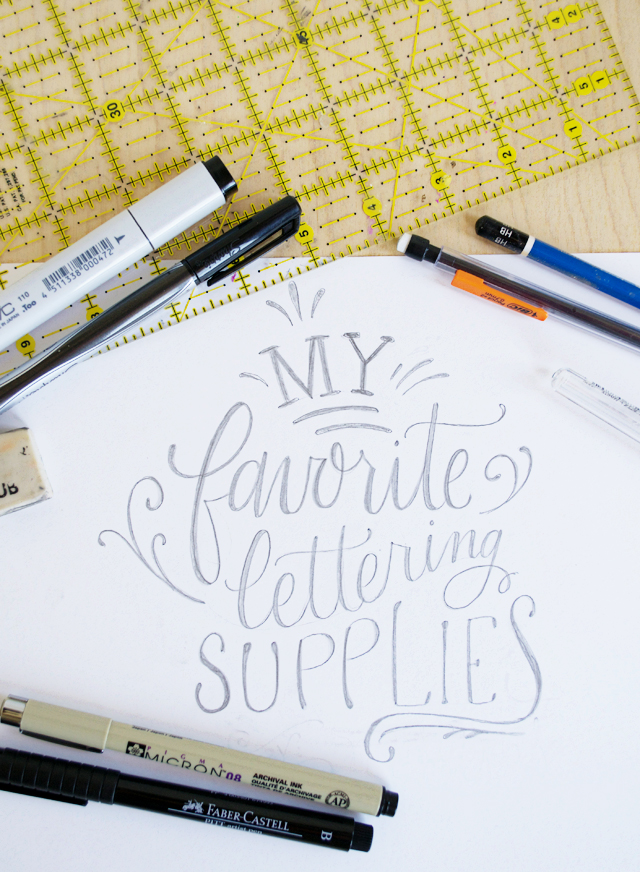 30
45
4 2
5 1
1
2
3
4
5
8
9
110
.Too
4 511338 000472
HB
HB
MY
favorite
lettering
SUPPLIES
MICRON 08
ARCHIVAL INK
QUALITÉ D'ARCHIVAGE
AP
FABER-CASTELL
PITT artist pen B